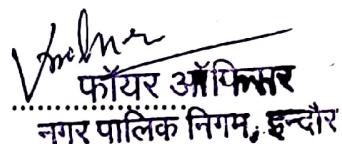 फॉयर ऑफिसर
नगर पालिक निगम, इन्दौर